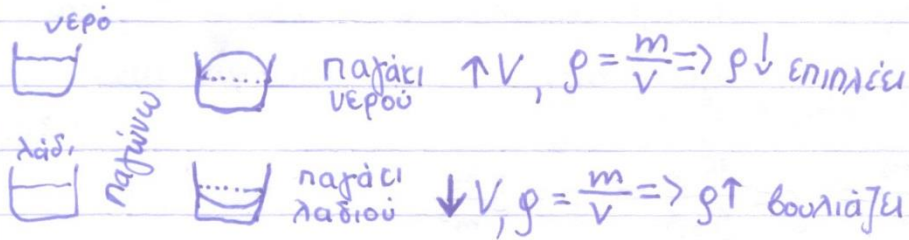 νερό
παγάκι νερού ↑V, ρ = m/V => ρ↓ επιπλέει
παγώνω
λάδι
παγάκι λαδιού ↓V, ρ = m/V => ρ↑ βουλιάζει